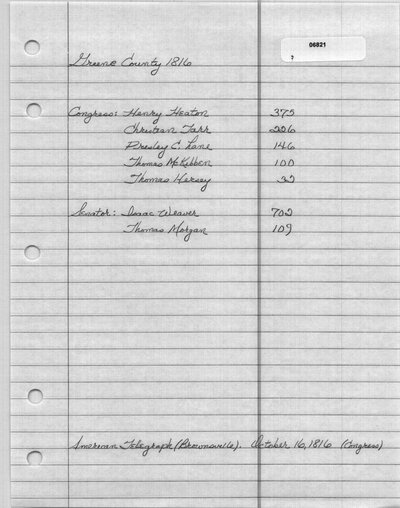 06821
?
Greene County 1816
Congress: Henry Heaton 375
Christian Tarr 226
Presley C. Lane 146
Thomas McKibben 100
Thomas Hersey 32
Senator: Isaac Weaver 702
Thomas Morgan 109
American Telegraph (Brownsville). October 16, 1816 (Congress)